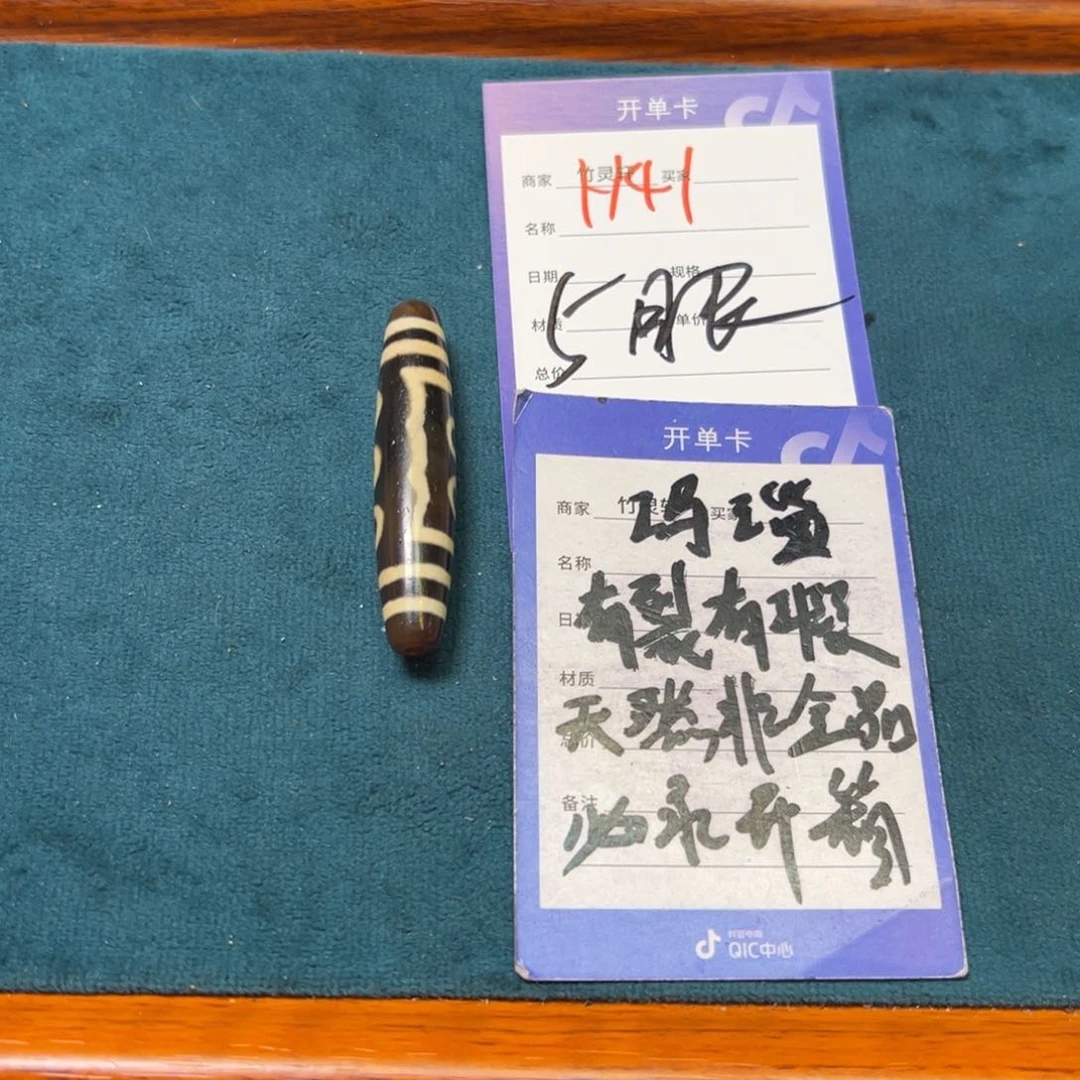 开单卡
商家 竹灵轩 买家
H41
名称
日期 规格
5眼
材质 单价
总价
开单卡
商家 竹灵轩 买家
玛瑙
名称
日期
有裂有瑕
材质
天然,非全品
总价
备注
必录开箱
抖音电商
QIC中心